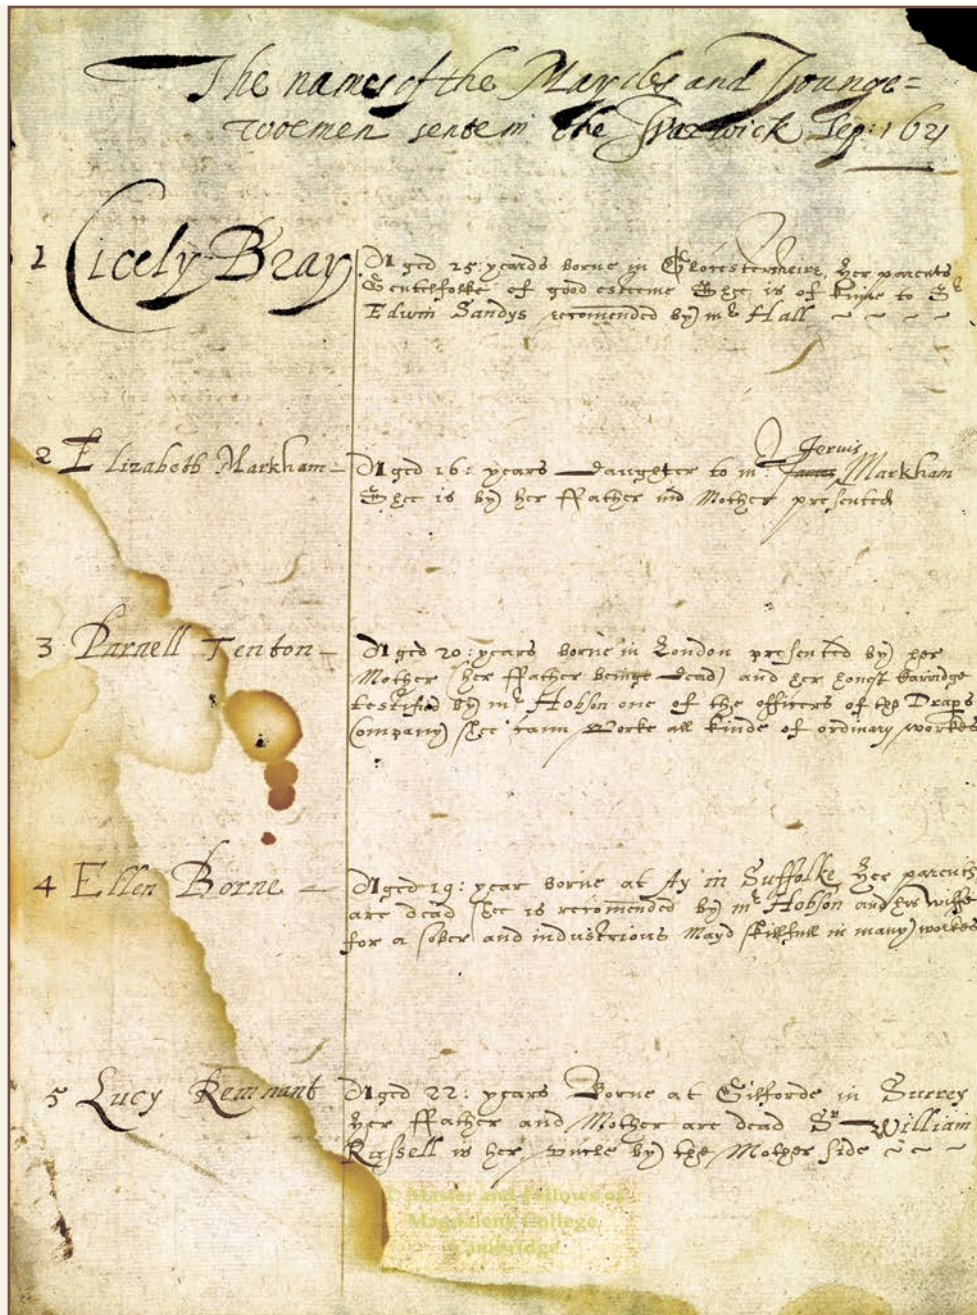 The names of the Maydes and Younge=
woemen sent in the Warwick Sep: 1621
1 Cicely Bray
Aged 25: yeares borne in Glocestersheire, her parents
Gentelfolke of good esteeme Shee is of kinne to Sr
Edwin Sandys recomended by mr Hall ~ ~ ~ ~
2 Elizabeth Markham –
Aged 16: years daughter to mr James Jervis Markham
Shee is by her ffather and Mother presented
3 Parnell Tenton –
Aged 20: years borne in London presented by her
Mother (her ffather beinge dead) and her honest Carridge
testified by mr Hobson one of the officers of the Drapers
Company) shee cann Worke all kinde of ordinary workes
4 Ellen Borne –
Aged 19: year borne at Ay in Suffolke her parents
are dead shee is recomended by mr Hobson and his wiffe
for a sober and industrious Mayd skillfull in many workes
5 Lucy Remnant
Aged 22: years Borne at Gilforde in Surrey
her ffather and Mother are dead Sr William
Russell is her uncle by the Mother side ~ ~ ~
© Master and Fellows of
Magdalene College,
Cambridge